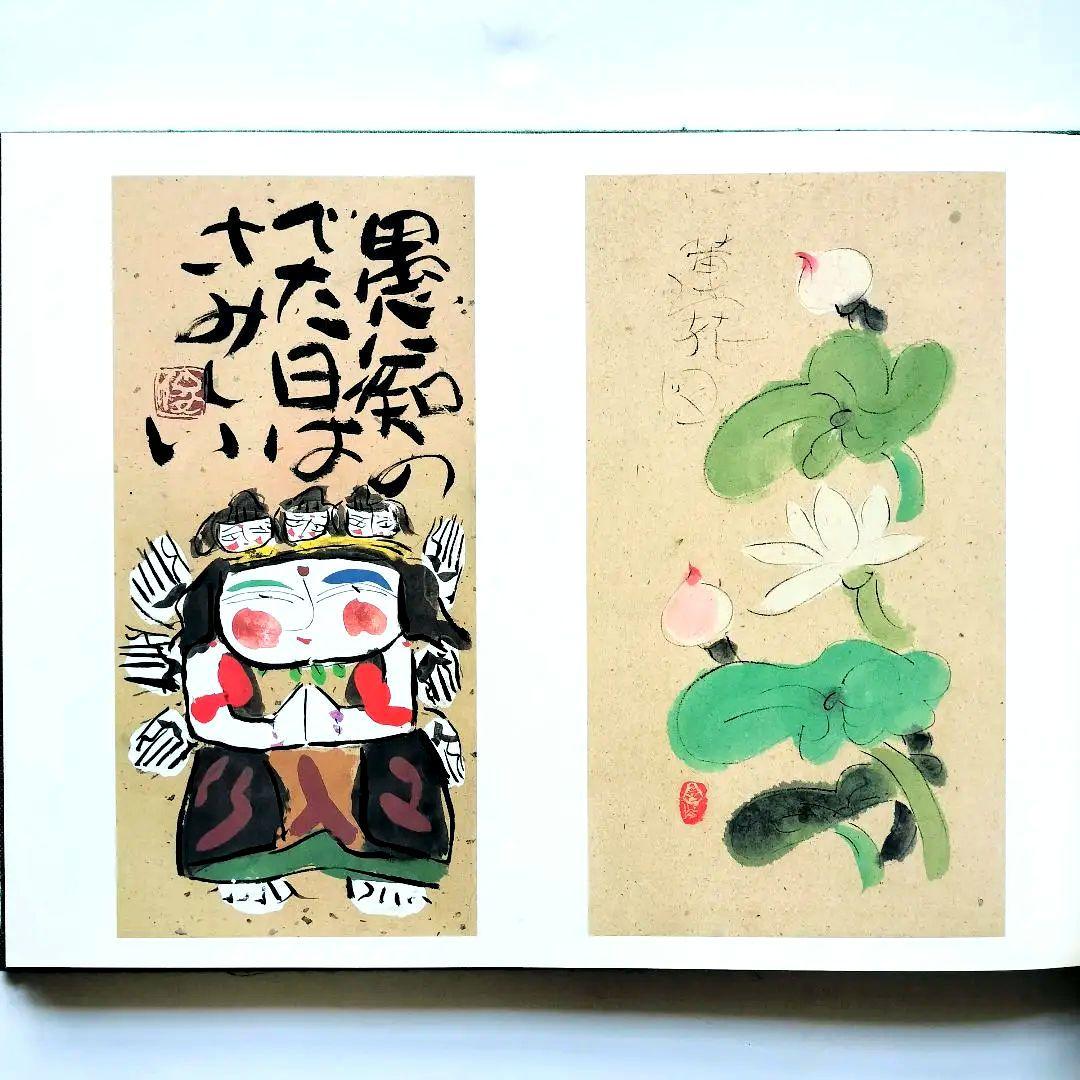 愚痴の
でた日は
さみしい
蓮花図